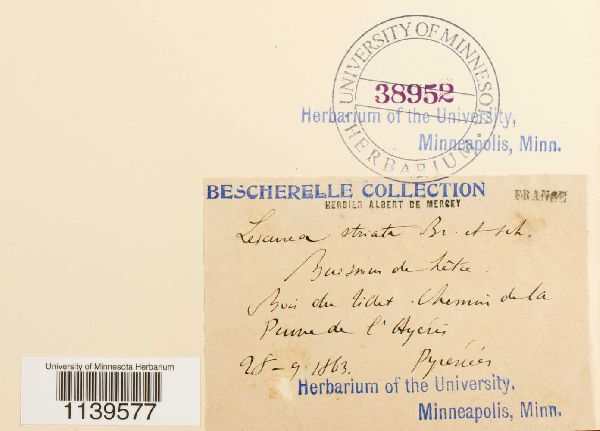 UNIVERSITY OF MINNESOTA
38952
HERBARIUM
Herbarium of the University,
Minneapolis, Minn.
BESCHERELLE COLLECTION
HERBIER ALBERT DE MERCEY
FRANCE
Lescurea striata Br. et sch.
Buissons de hêtre.
Bois du Lidet. Chemin de la
de l'Ayéris
28-9.1863. Pyrénées
Herbarium of the University,
Minneapolis, Minn.
University of Minnesota Herbarium
1139577